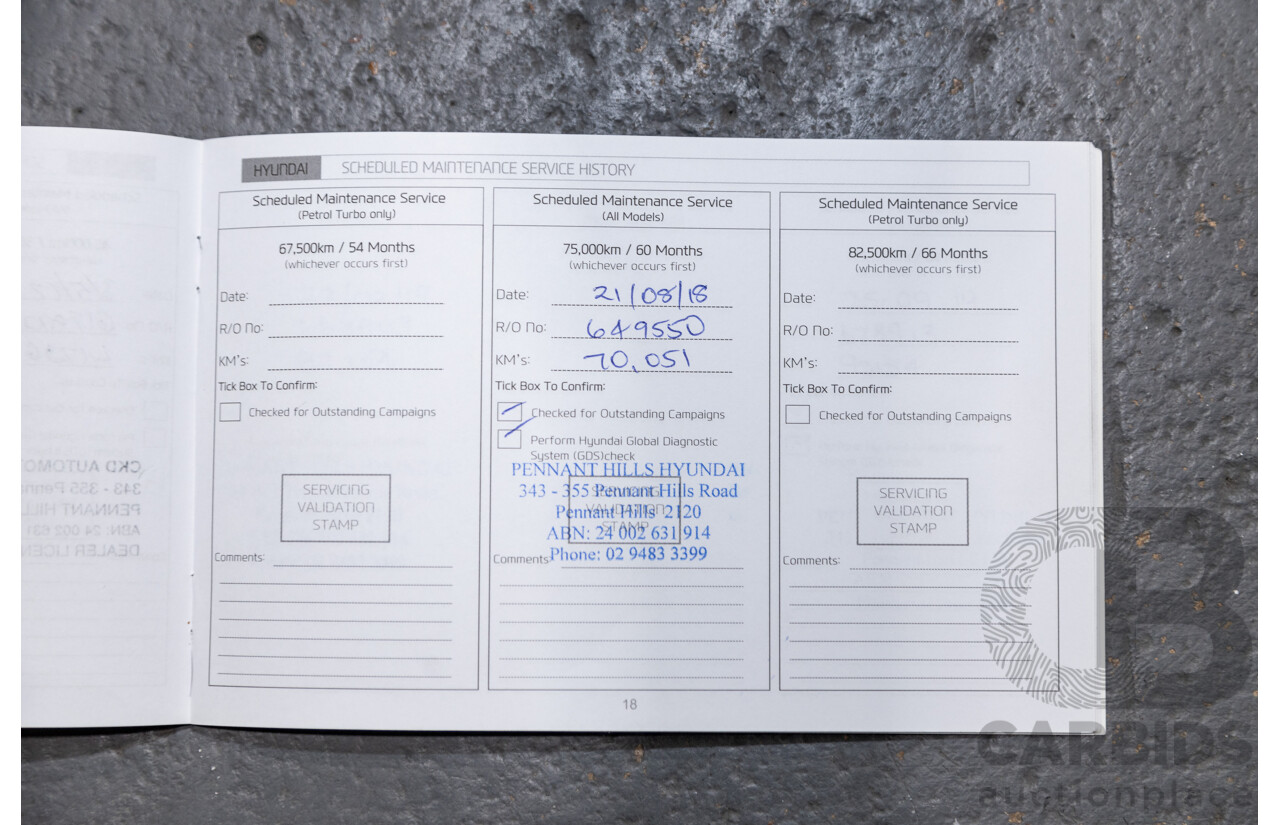 HYUNDAI SCHEDULED MAINTENANCE SERVICE HISTORY
Scheduled Maintenance Service
(Petrol Turbo only)
67,500km / 54 Months
(whichever occurs first)
Date:
R/O No:
KM's:
Tick Box To Confirm:
Checked for Outstanding Campaigns
SERVICING
VALIDATION
STAMP
Comments:
Scheduled Maintenance Service
(All Models)
75,000km / 60 Months
(whichever occurs first)
Date: 21/08/18
R/O No: 649550
KM's: 70,051
Tick Box To Confirm:
Checked for Outstanding Campaigns
Perform Hyundai Global Diagnostic
System (GDS)check
PENNANT HILLS HYUNDAI
SERVICING
343 - 355 Pennant Hills Road
VALIDATION
Pennant Hills 2120
STAMP
ABN: 24 002 631 914
Phone: 02 9483 3399
Comments:
Scheduled Maintenance Service
(Petrol Turbo only)
82,500km / 66 Months
(whichever occurs first)
Date:
R/O No:
KM's:
Tick Box To Confirm:
Checked for Outstanding Campaigns
SERVICING
VALIDATION
STAMP
Comments:
18
CARBIDS
auctionplace